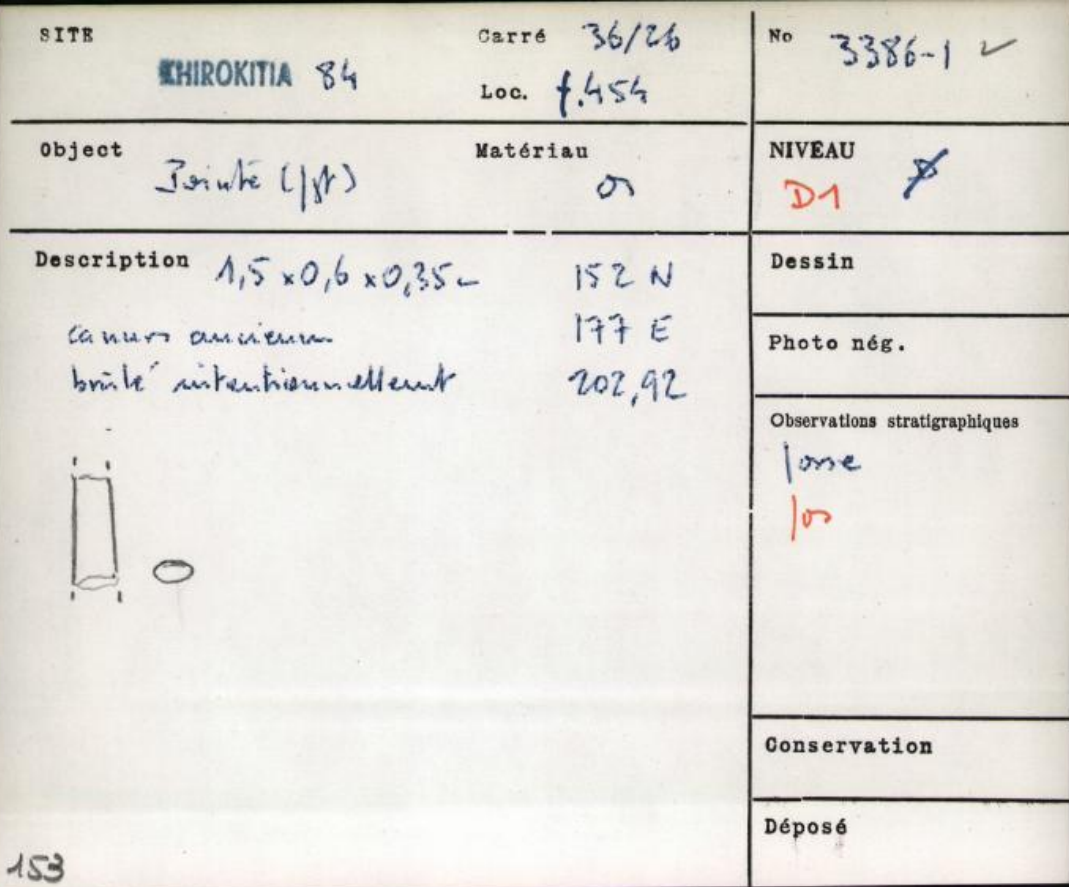 SITE
KHIROKITIA 84
Carré 36/26
Loc. f.454
No 3386-1 ✓
Object
Pointe (fgt)
Matériau
os
NIVEAU
D1
Description 1,5 x 0,6 x 0,35
152 N
cassures anciennes
177 E
brûlé intentionnellement
202,92
Dessin
Photo nég.
Observations stratigraphiques
fosse
Conservation
Déposé
153